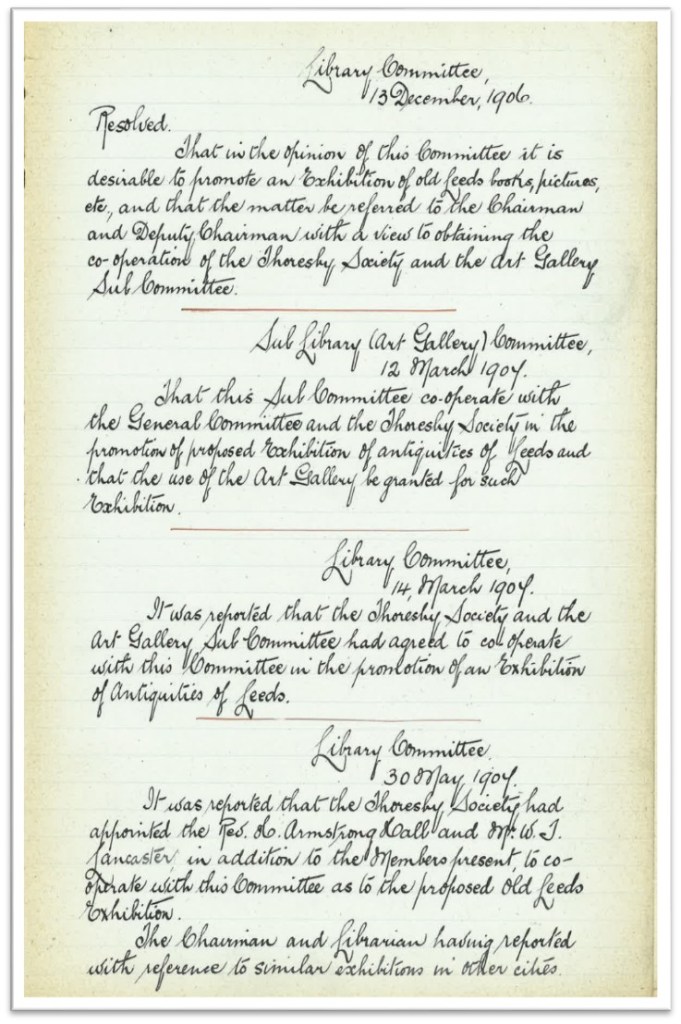 Library Committee,
13 December, 1906.
Resolved.
That in the opinion of this Committee it is
desirable to promote an Exhibition of old Leeds books, pictures,
etc., and that the matter be referred to the Chairman
and Deputy Chairman with a view to obtaining the
co-operation of the Thoresby Society and the Art Gallery
Sub Committee.
Sub Library (Art Gallery) Committee,
12 March 1907.
That this Sub Committee co-operate with
the General Committee and the Thoresby Society in the
promotion of proposed Exhibition of antiquities of Leeds and
that the use of the Art Gallery be granted for such
Exhibition.
Library Committee,
14, March 1907.
It was reported that the Thoresby Society and the
Art Gallery Sub Committee had agreed to co-operate
with this Committee in the promotion of an Exhibition
of Antiquities of Leeds.
Library Committee.
30 May 1907.
It was reported that the Thoresby Society had
appointed the Rev. H. Armstrong Hall and Mr. W. T.
Lancaster, in addition to the Members present, to co-
operate with this Committee as to the proposed Old Leeds
Exhibition.
The Chairman and Librarian having reported
with reference to similar exhibitions in other cities